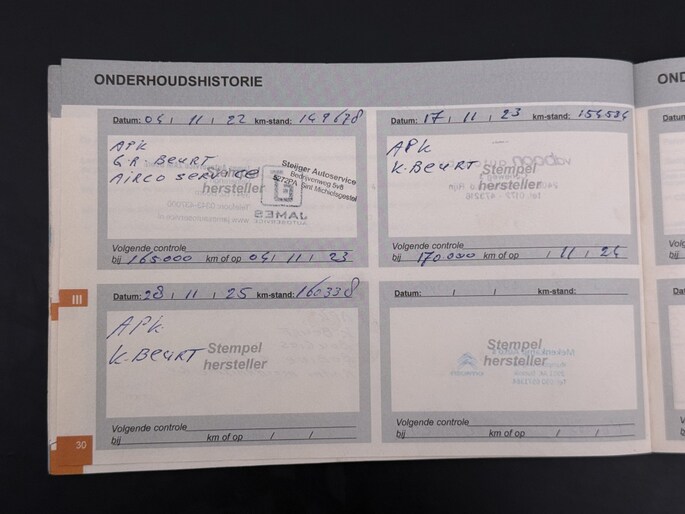 ONDERHOUDSHISTORIE
Datum: 04 / 11 / 22 km-stand: 149678
APK
GR BEURT
AIRCO SERVICE
Stempel
hersteller
Steijger Autoservice
Bedrijvenweg 5v8
5272PA Sint Michielsgestel
JAMES
AUTOSERVICE
Volgende controle
bij 165000 km of op 04 / 11 / 23
Datum: 17 / 11 / 23 km-stand: 154584
APK
K. BEURT
Stempel
hersteller
Volgende controle
bij 170000 km of op / 11 / 24
III
Datum: 28 / 11 / 25 km-stand: 160338
APK
K. BEURT
Stempel
hersteller
Volgende controle
bij km of op / /
Datum: / / km-stand:
Stempel
hersteller
Volgende controle
bij km of op / /
30
OND
Datum:
bij